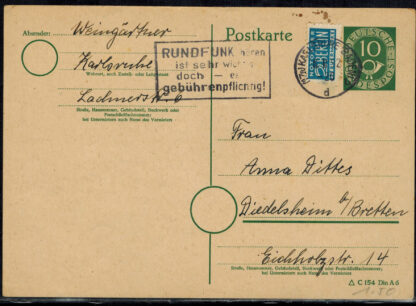 Absender:
Weingärtner
Karlsruhe
Wohnort, auch Zustell- oder Leitpostamt
Lachnerstr. 6
Straße, Hausnummer, Gebäudeteil, Stockwerk oder
Postschließfachnummer;
bei Untermietern auch Name des Vermieters
RUNDFUNK hören
ist sehr wichtig
doch – es
gebührenpflichtig!
Postkarte
NOTOPFER
2 BERLIN
STEUERMARKE
KARLSRUHE
d
DEUTSCHE
10
BUNDESPOST
Frau
Anna Dittes
Diedelsheim b/Bretten
Eichholzstr. 14
Straße, Hausnummer, Gebäudeteil, Stockwerk oder Postschließfachnummer;
bei Untermietern auch Name des Vermieters
C 154 Din A 6
1.50